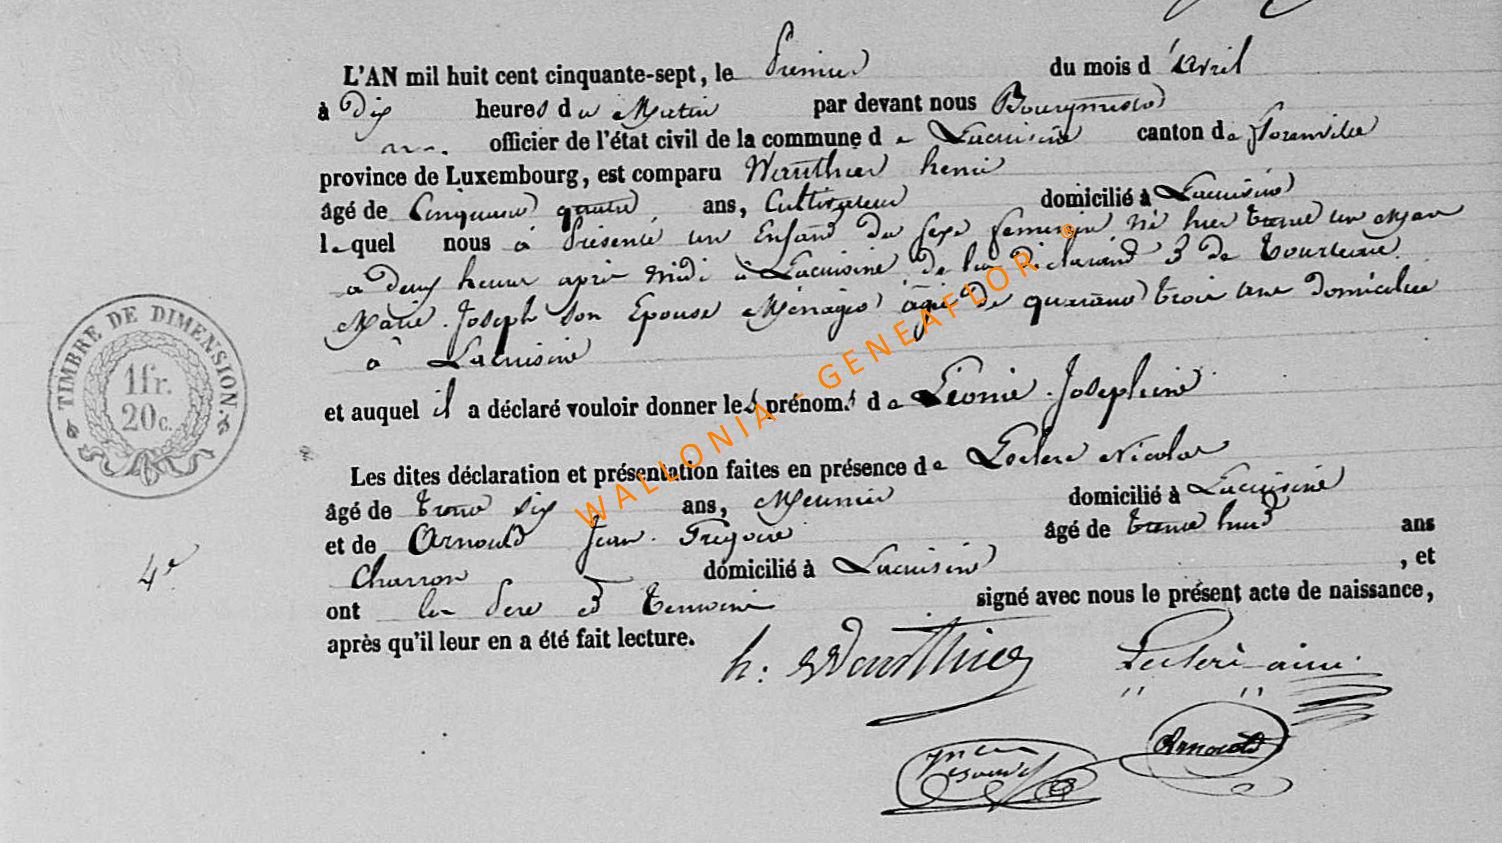 L'AN mil huit cent cinquante-sept, le Premier du mois d'avril
à Dix heures du Matin par devant nous Bourgmestre
officier de l'état civil de la commune de Lacuisine canton de florenville
province de Luxembourg, est comparu Wauthier henri
âgé de Cinquante quatre ans, Cultivateur domicilié à Lacuisine
lequel nous à Présenté un Enfant du sexe feminin né hier trente un Mars
a deux heure après midi à Lacuisine de lui Déclarant & de tourteau
Marie Joseph son Epouse Ménagère âgée de quarante trois ans domiciliée
à Lacuisine
et auquel il a déclaré vouloir donner les prénoms de Léonie Joséphine
Les dites déclaration et présentation faites en présence de Leclere Nicolas
âgé de trente six ans, Meunier domicilié à Lacuisine
et de Arnould Jean Grégoire âgé de trente huit ans
Charron domicilié à Lacuisine, et
ont les Père et temoins signé avec nous le présent acte de naissance,
après qu'il leur en a été fait lecture.
h: Wauthier Leclere ainé
Arnould
TIMBRE DE DIMENSION.
1fr.
20c.
4e
WALLONIA - GENEAFLOR ©